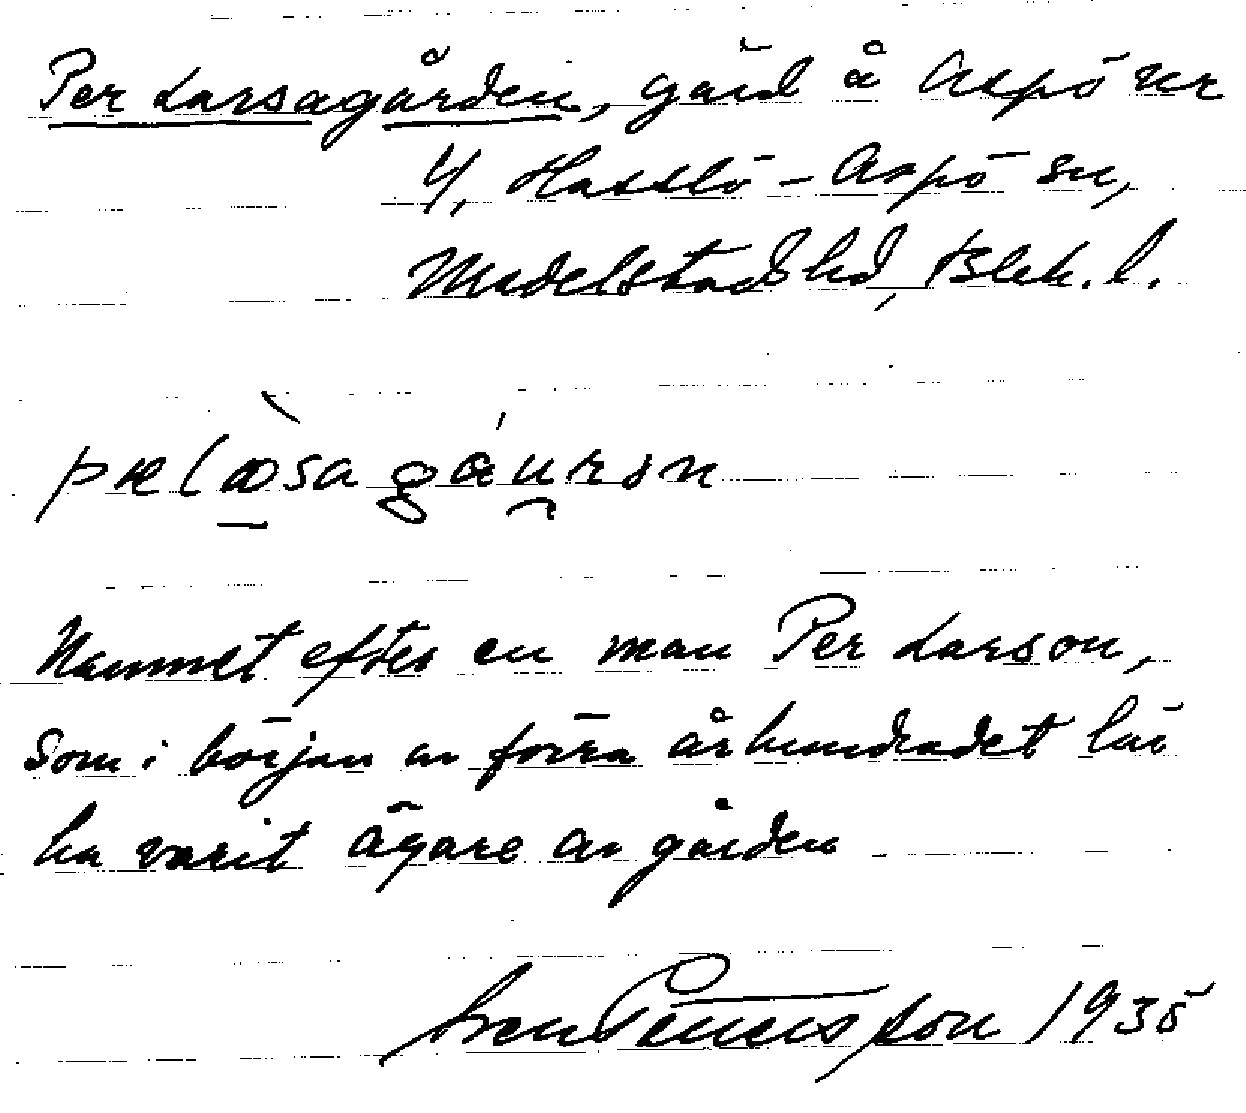 Per Larsagården, gård å Aspö nr
4, Hasslö - Aspö sn,
Medelstads hd, Blek. l.
pælɷ̀sa gáu̯rən
Namnet efter en man Per Larson,
som i början av förra århundradet lär
ha varit ägare av gården
Sven Pettersson 1935